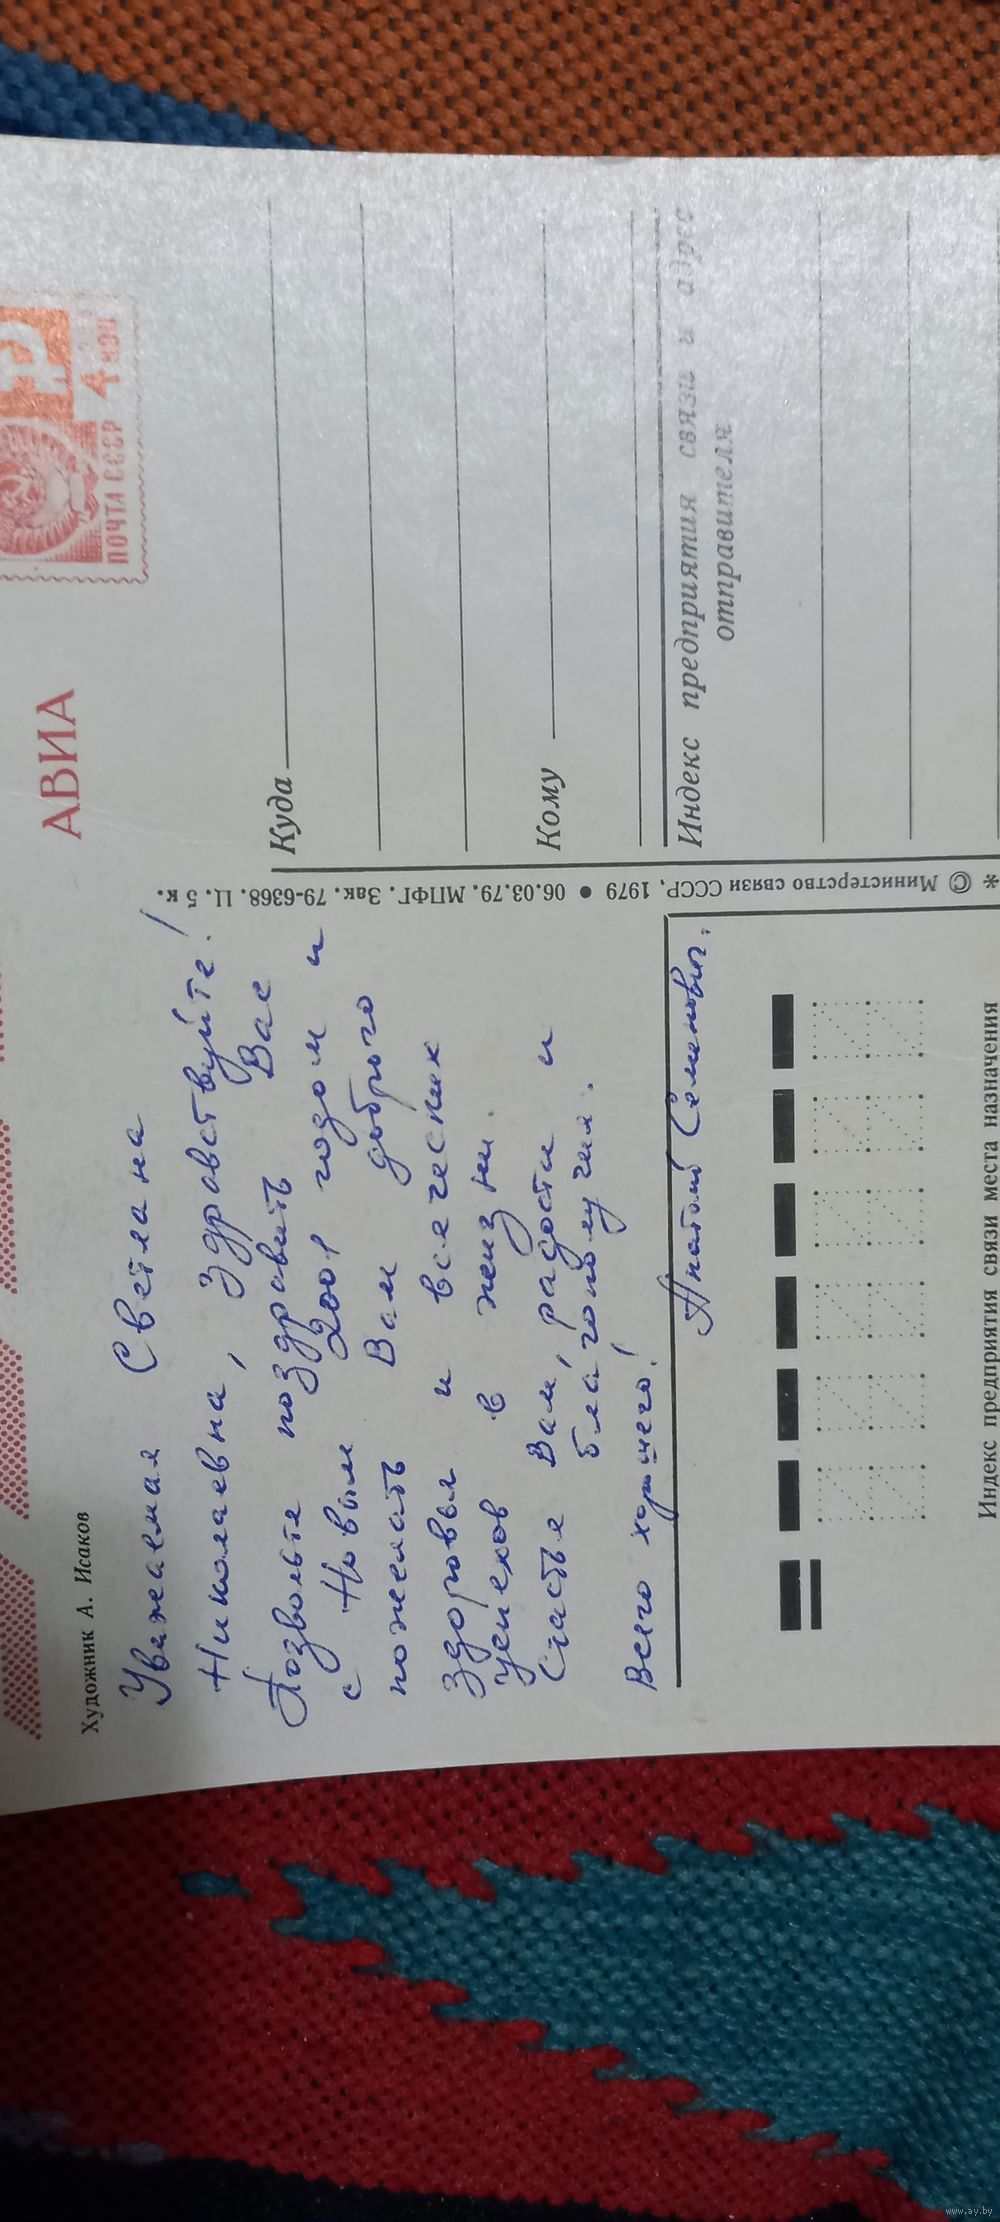 АВИА
ПОЧТА СССР 4 КОП
Художник А. Исаков
Уважаемая Светлана
Николаевна, Здравствуйте!
Позвольте поздравить Вас
с Новым 2001 годом и
пожелать Вам доброго
здоровья и всяческих
успехов в жизни.
Счастья Вам, радости и
благополучия.
Всего хорошего!
Анатолий Семенович.
* © Министерство связи СССР, 1979 ● 06.03.79. МПФГ. Зак. 79-6368. Ц. 5 к.
Куда
Кому
Индекс предприятия связи и адрес
отправителя
Индекс предприятия связи места назначения
www.ay.by